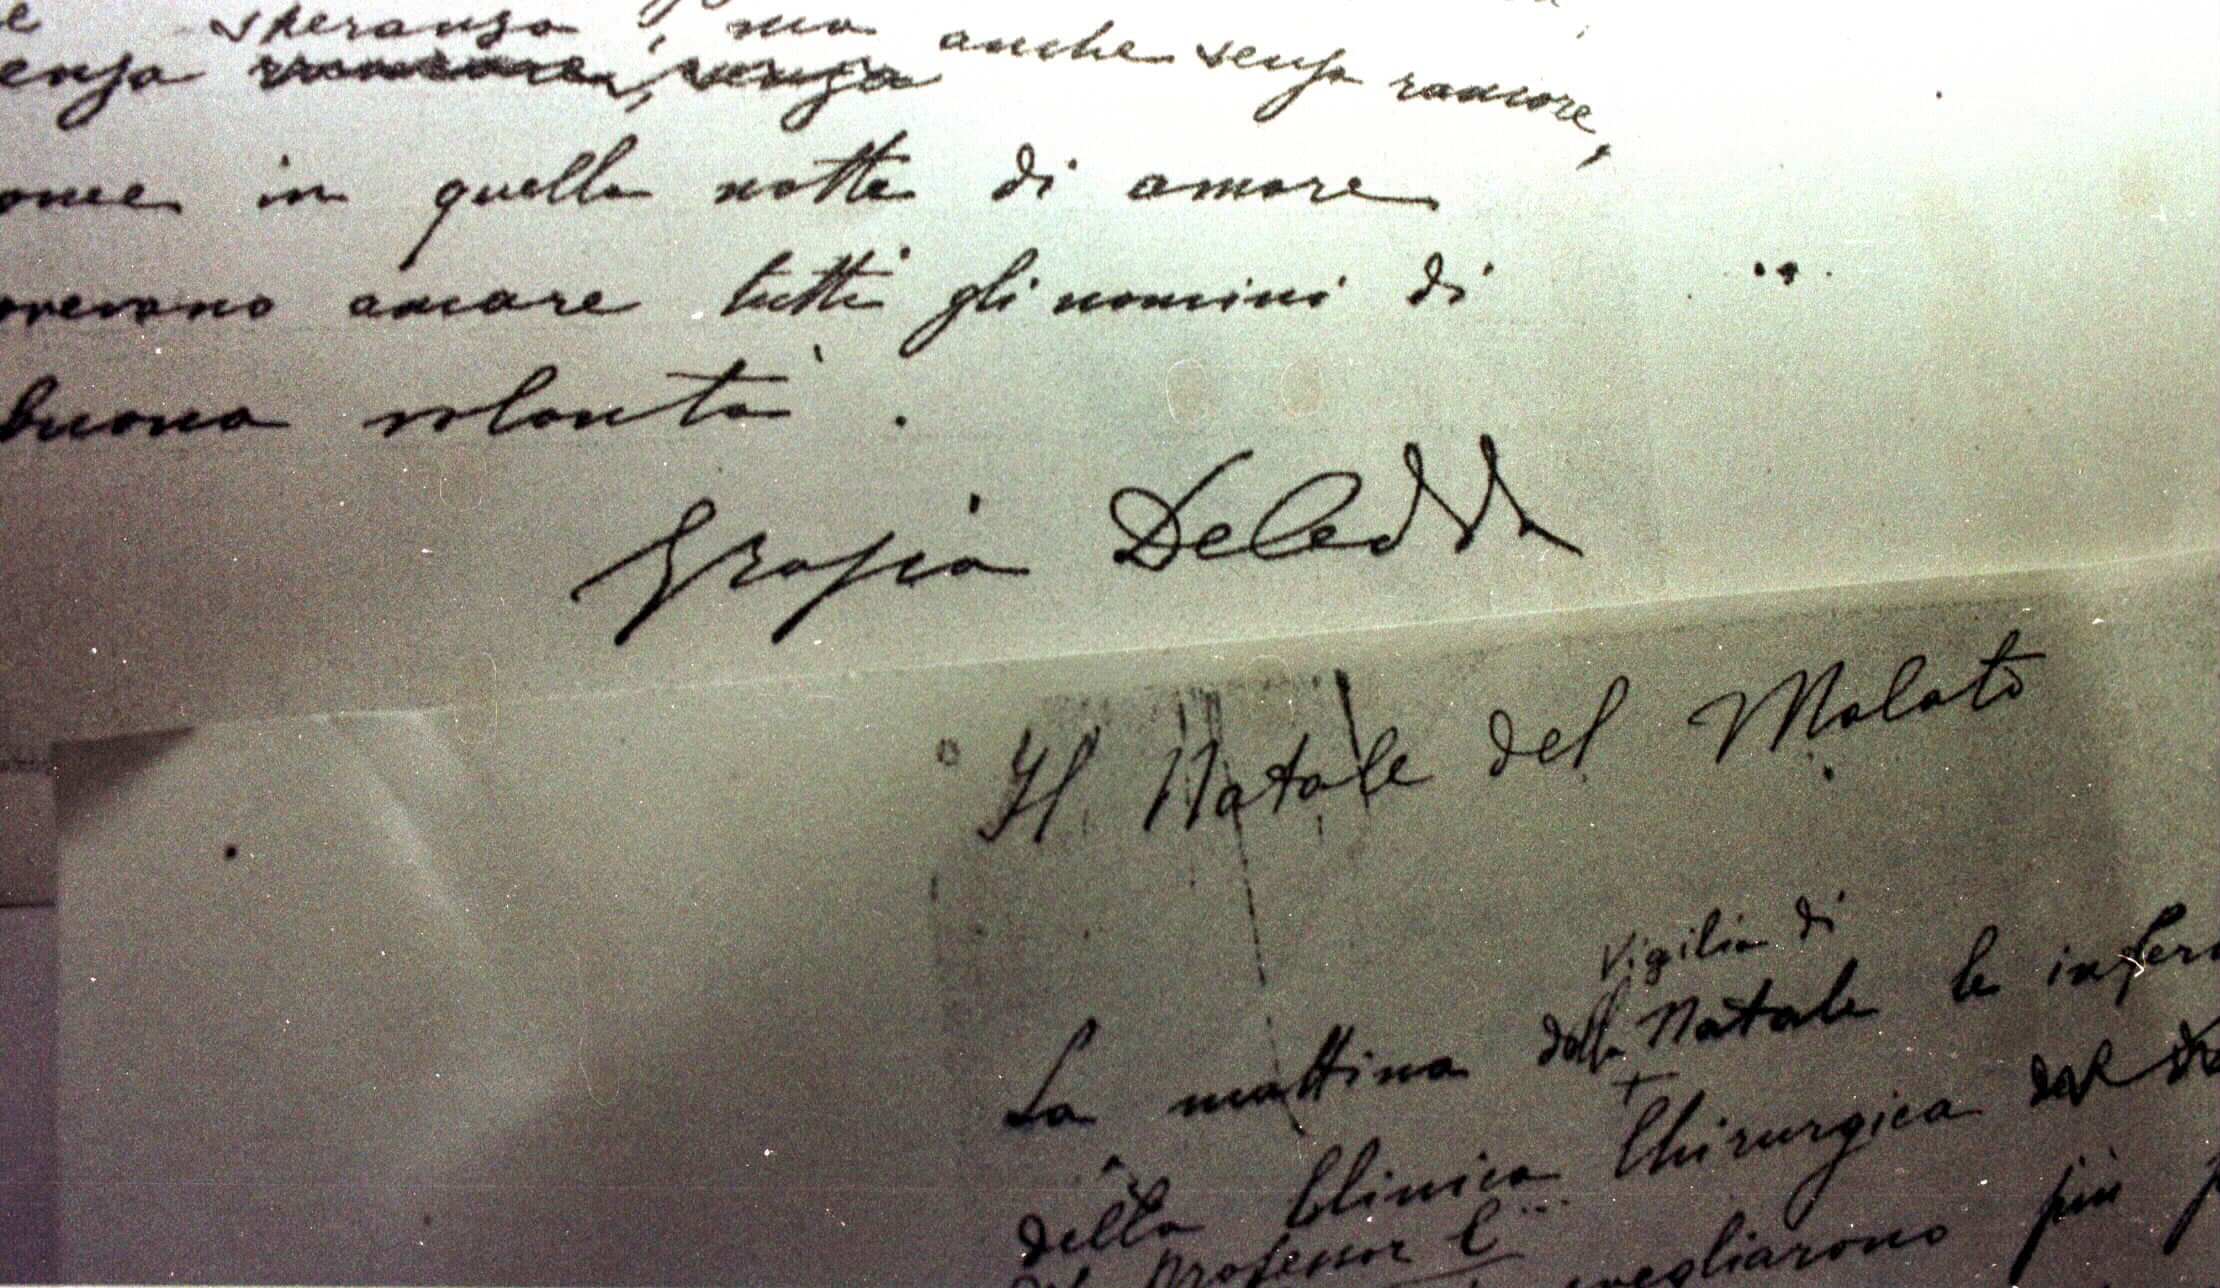 e speranza, ma anche senza rancore,
enza senza
ome in quella notte di amore
ovevano amare tutti gli uomini di
buona volontà.
Grazia Deledda
Il Natale del Malato
Vigilia di
La mattina della Natale le infer
della Clinica Chirurgica del
del Professor C... svegliarono più